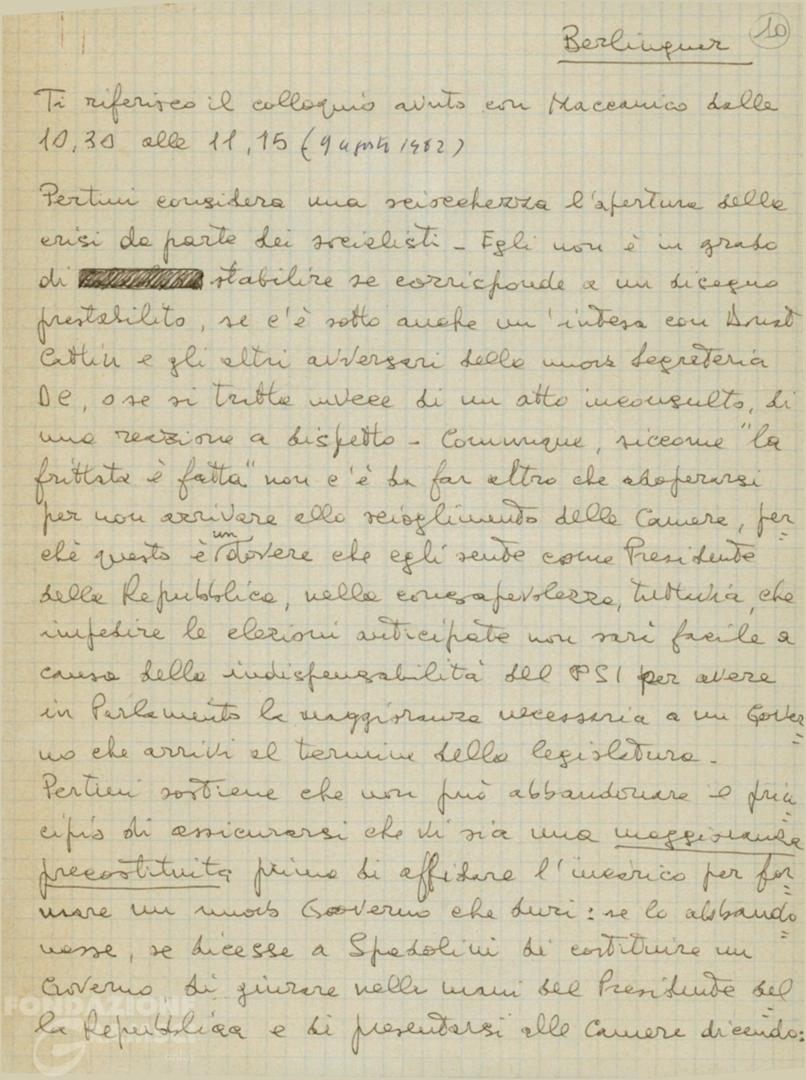 10
Berlinguer
Ti riferisco il colloquio avuto con Maccanico dalle
10,30 alle 11,15 (9 agosto 1982)
Pertini considera una sciocchezza l'apertura della
crisi da parte dei socialisti - Egli non è in grado
di stabilire se corrisponde a un disegno
prestabilito, se c'è sotto anche un'intesa con Donat
Cattin e gli altri avversari della nuova Segreteria
DC, o se si tratta invece di un atto inconsulto, di
una reazione a dispetto - Comunque, siccome "la
frittata è fatta" non c'è da far altro che adoperarsi
per non arrivare allo scioglimento delle Camere, per=
chè questo è un dovere che egli sente come Presidente
della Repubblica, nella consapevolezza, tuttavia, che
impedire le elezioni anticipate non sarà facile a
causa della indispensabilità del PSI per avere
in Parlamento la maggioranza necessaria a un Gover=
no che arrivi al termine della legislatura -
Pertini sostiene che non può abbandonare il prin=
cipio di assicurarsi che vi sia una maggioranza
precostituita prima di affidare l'incarico per for=
mare un nuovo Governo che duri: se lo abbando=
nasse, se dicesse a Spadolini di costituire un
Governo di giurare nelle mani del Presidente del
la Repubblica e di presentarsi alle Camere dicendo:
FONDAZIONE